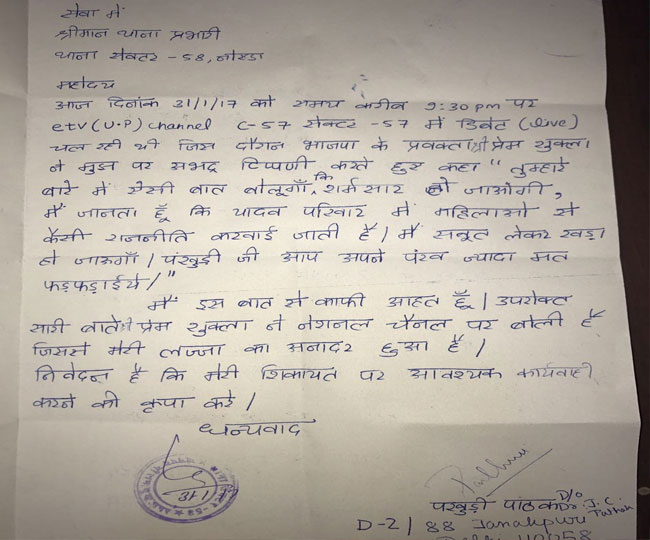 सेवा में
श्रीमान थाना प्रभारी
थाना सेक्टर -58, नोएडा
महोदय
आज दिनांक 31/1/17 को समय करीब 9:30 pm पर
etv (U.P) channel C-57 सेक्टर -57 में डिबेट (live)
चल रही थी जिस दौरान भाजपा के प्रवक्ता श्री प्रेम शुक्ला
ने मुझ पर अभद्र टिप्पणी करते हुए कहा "तुम्हारे
बारे में ऐसी बात बोलूगाँ कि शर्मसार हो जाओगी,
मैं जानता हूँ कि यादव परिवार में महिलाओ से
कैसी राजनीति करवाई जाती है। मैं सबूत लेकर खड़ा
हो जाऊगाँ। पंखुड़ी जी आप अपने पंख ज्यादा मत
फड़फड़ाईये।"
मैं इस बात से काफी आहत हूँ। उपरोक्त
सारी बाते श्री प्रेम शुक्ला ने नेशनल चैनल पर बोली है
जिससे मेरी लज्जा का अनादर हुआ है।
निवेदन है कि मेरी शिकायत पर आवश्यक कार्यवाही
करने की कृपा करे।
धन्यवाद
31/1
पंखुड़ी पाठक D/o J.C. Pathak
D-2/88 Janakpuri
Delhi 110058